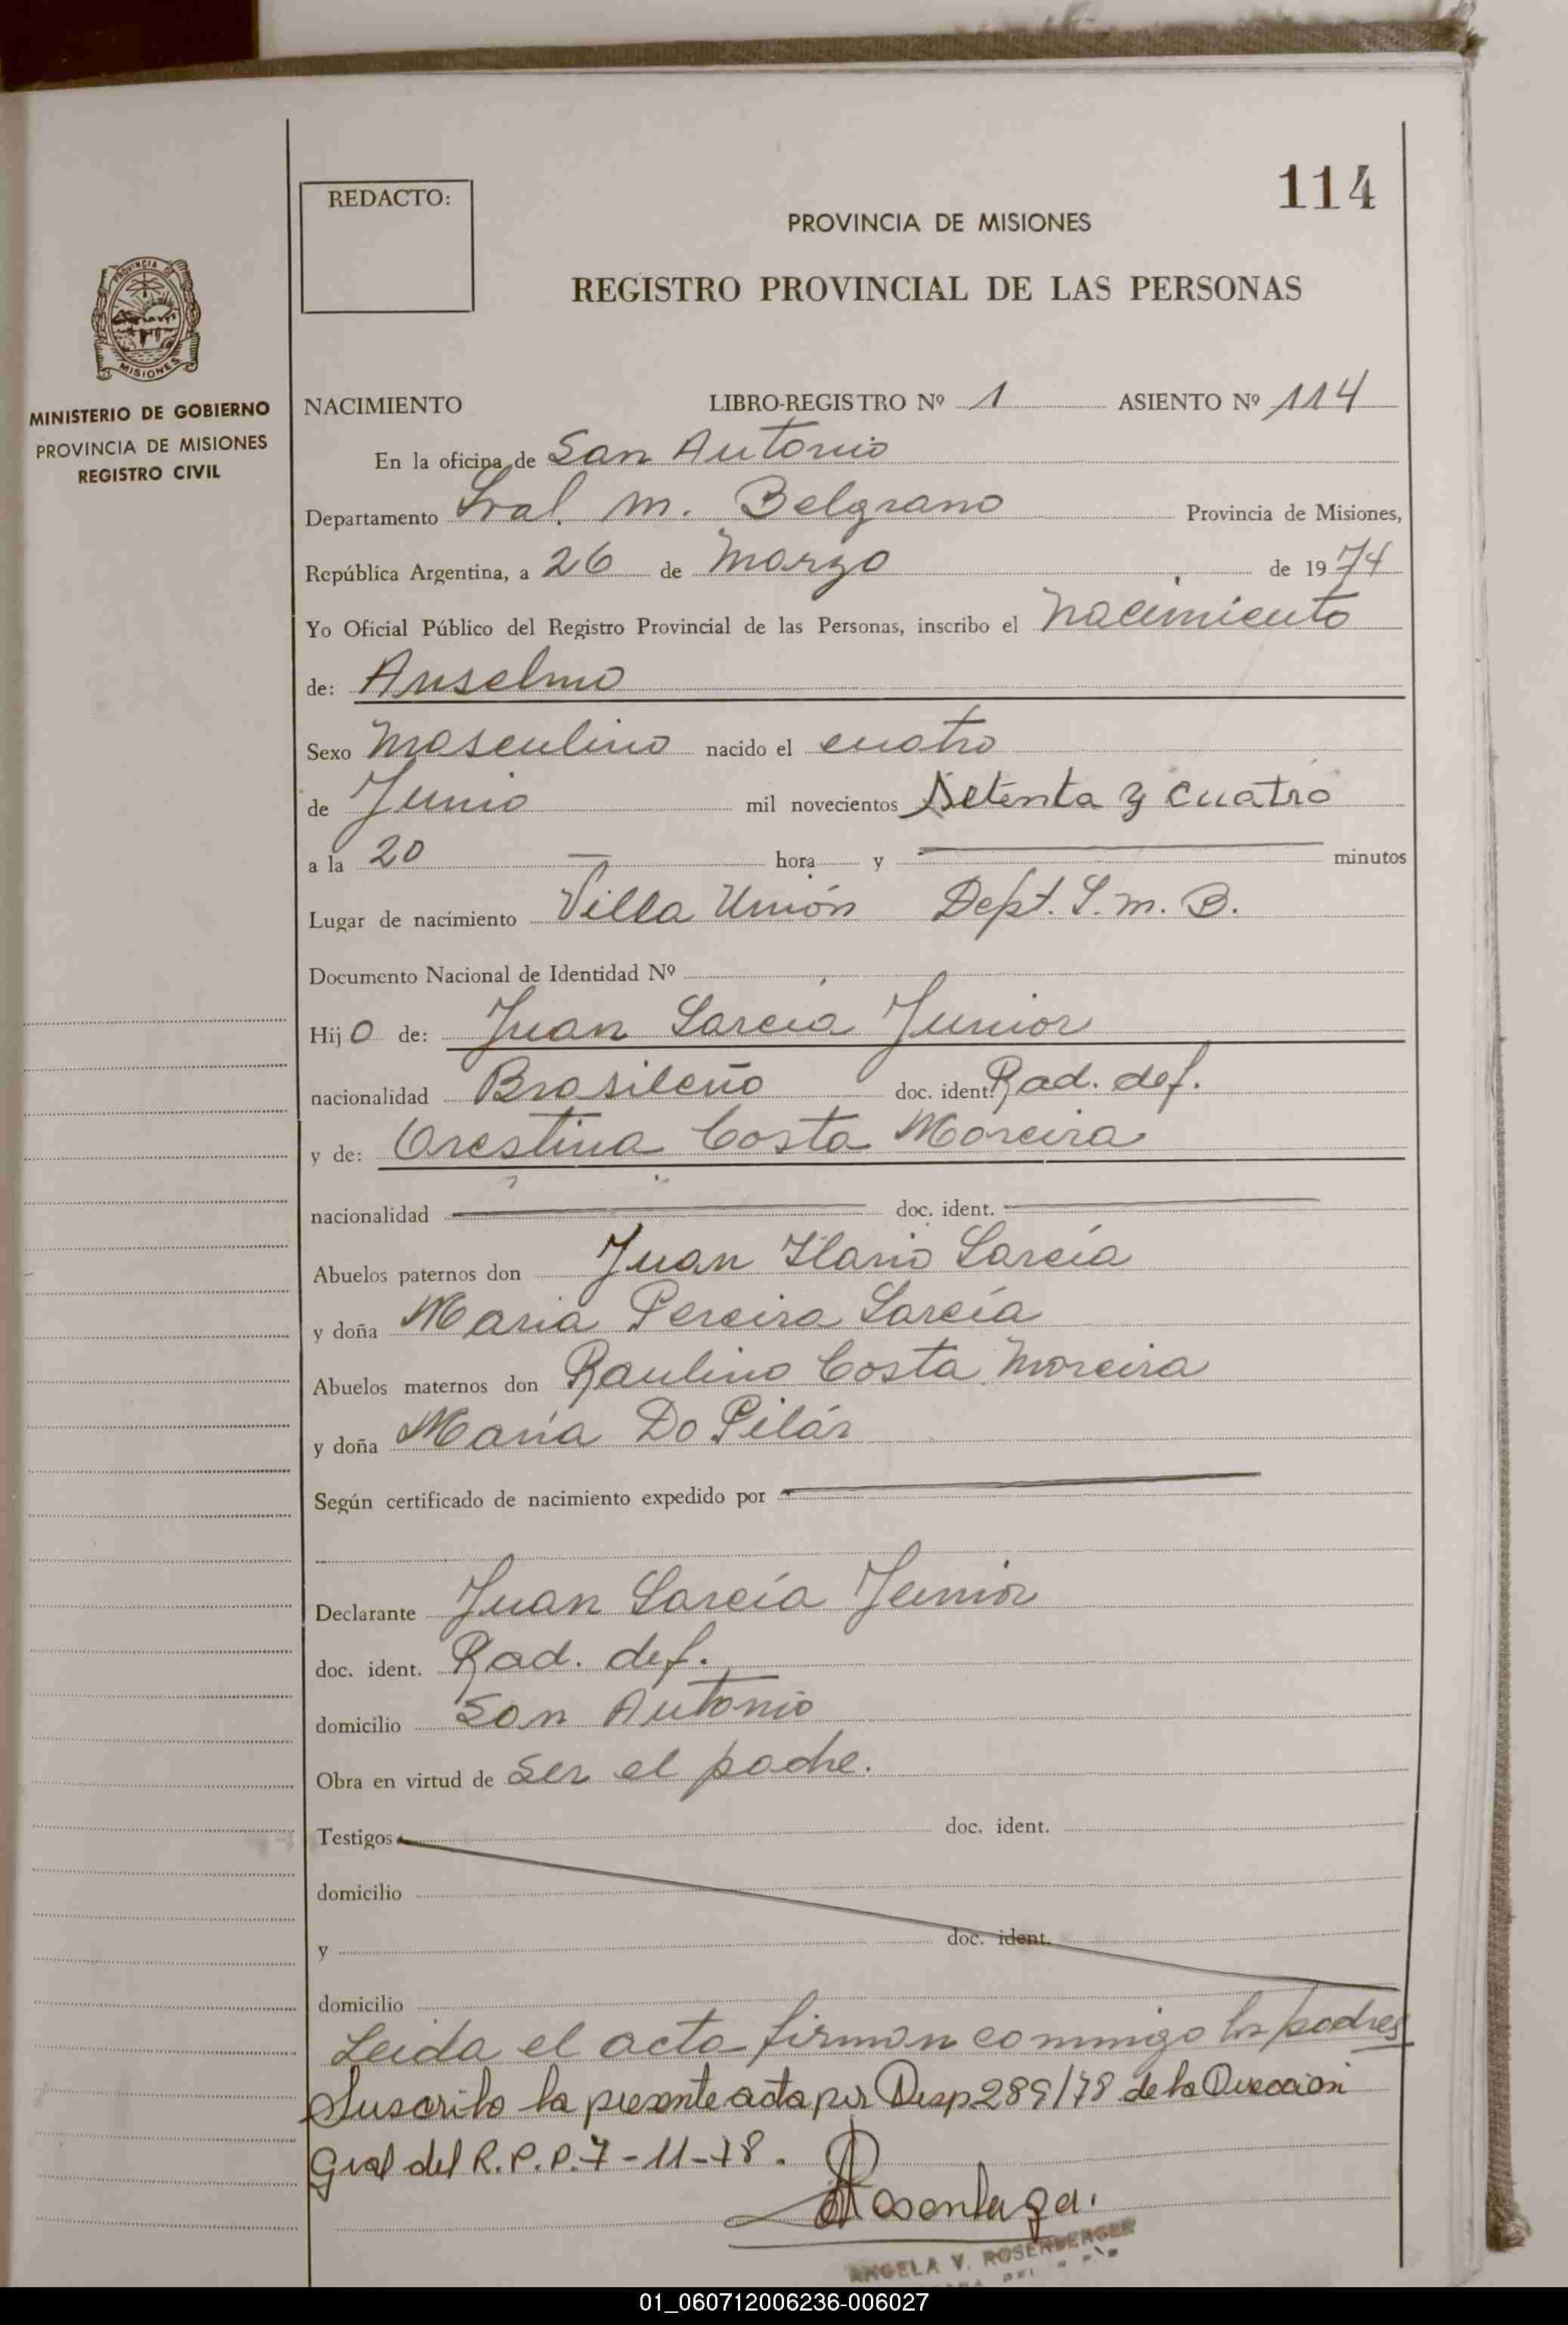 114
REDACTO:
PROVINCIA DE MISIONES
REGISTRO PROVINCIAL DE LAS PERSONAS
PROVINCIA DE
MISIONES
MINISTERIO DE GOBIERNO
PROVINCIA DE MISIONES
REGISTRO CIVIL
NACIMIENTO LIBRO-REGISTRO Nº 1 ASIENTO Nº 114
En la oficina de San Antonio
Departamento Gral. M. Belgrano Provincia de Misiones,
República Argentina, a 26 de Marzo de 1974
Yo Oficial Público del Registro Provincial de las Personas, inscribo el nacimiento
de: Anselmo
Sexo Masculino nacido el cuatro
de Junio mil novecientos Setenta y cuatro
a la 20 — hora y — minutos
Lugar de nacimiento Villa Unión Dept. G. M. B.
Documento Nacional de Identidad Nº
Hijo de: Juan García Junior
nacionalidad Brasileño doc. ident. Rad. def.
y de: Orestina Costa Moreira
nacionalidad — doc. ident. —
Abuelos paternos don Juan Ilario García
y doña Maria Pereira García
Abuelos maternos don Raulino Costa Moreira
y doña María Do Pilár
Según certificado de nacimiento expedido por —
Declarante Juan García Junior
doc. ident. Rad. def.
domicilio San Antonio
Obra en virtud de ser el padre.
Testigos doc. ident.
domicilio
y doc. ident.
domicilio
Leida el acta firman conmigo los padres
Suscribo la presente acta por Disp 289/78 de la Dirección
Gral del R.P.P. 7-11-78.
ARosenberger
ANGELA V. ROSENBERGER
01_060712006236-006027